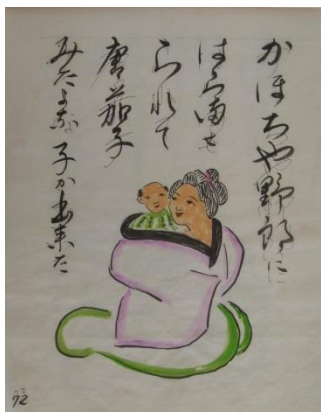 かほちや野郎に
はら満せ
られて
唐茄子
みたよな子か出来た
72